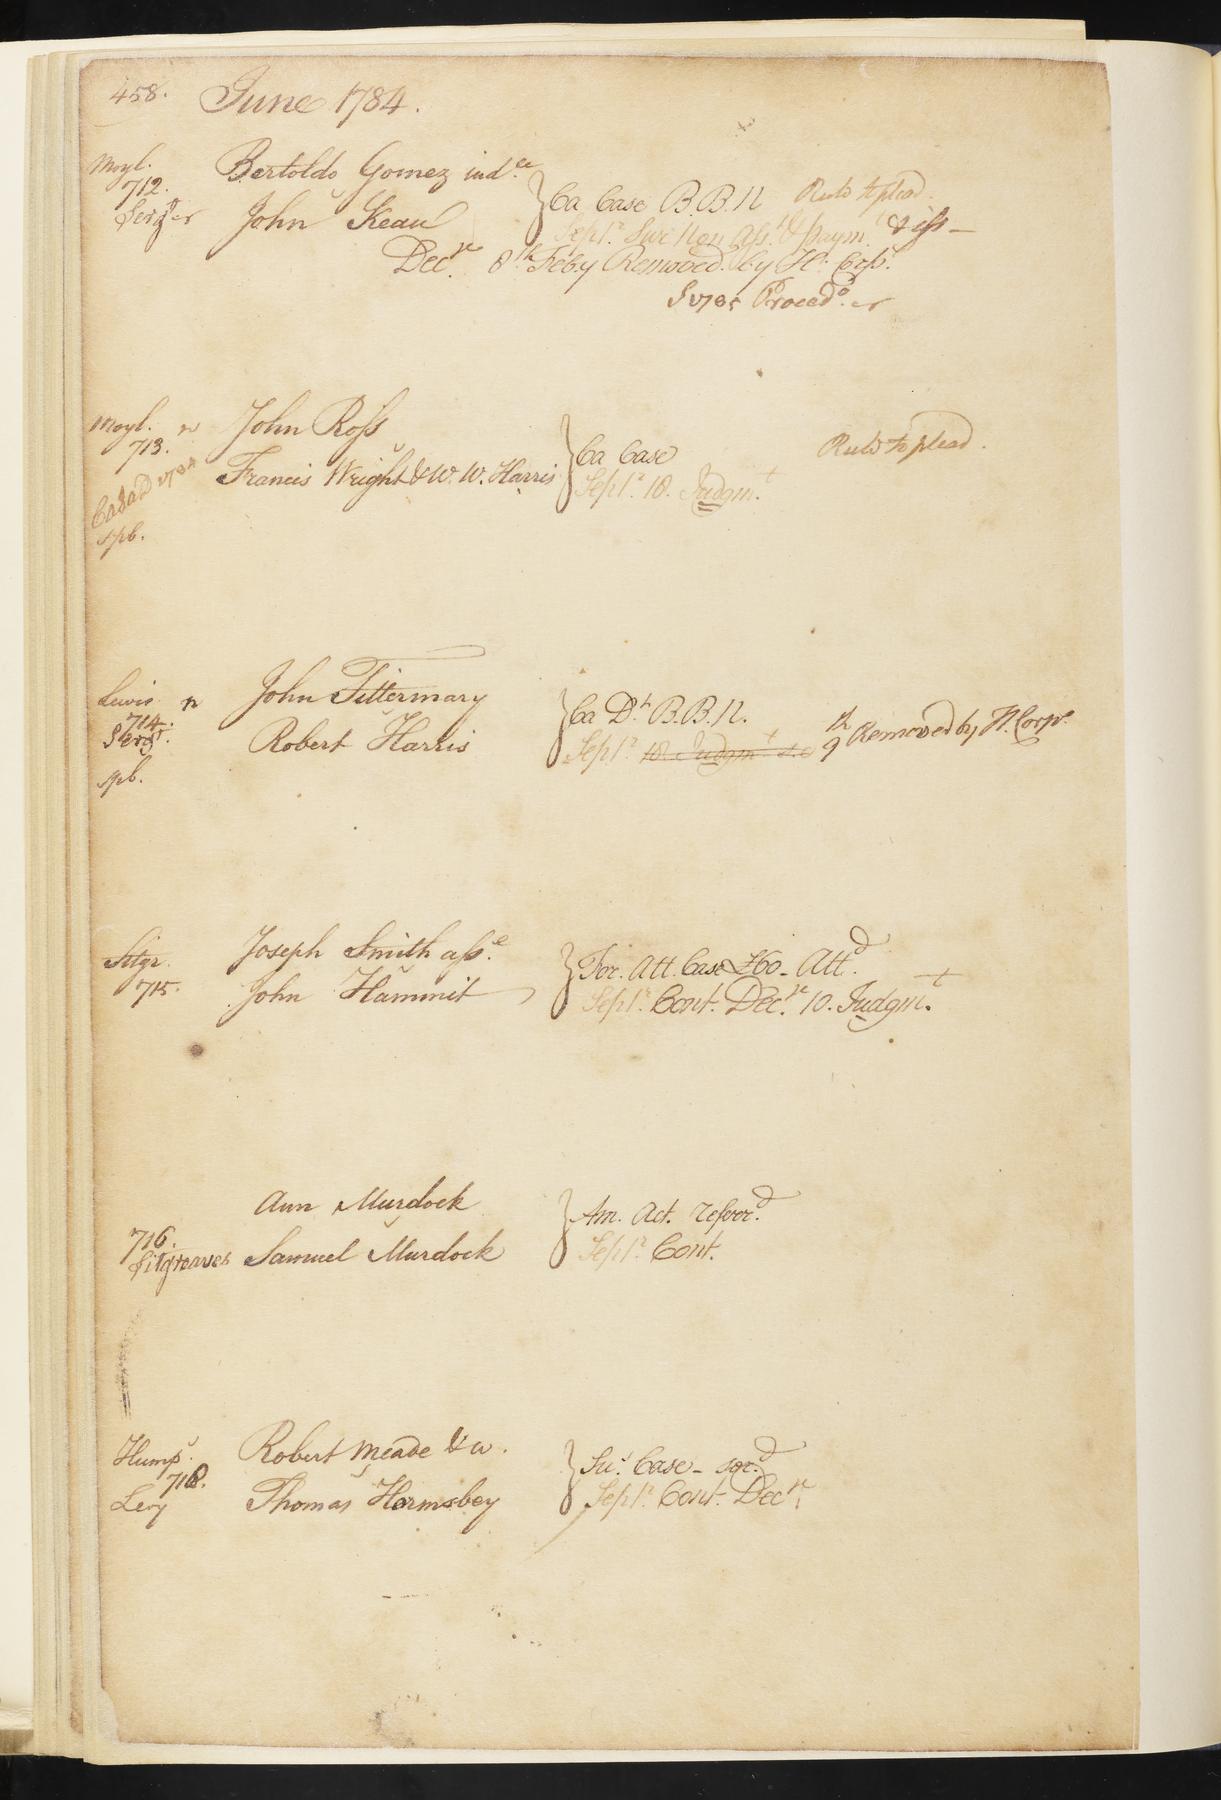 458. June 1784.
Moyl. Bertoldo Gomez ind.ee
712. Ca Case B.B.N Ruld to plead.
Serg.t John Keau Sept.r Non Ass.t & paym.t & iss
Dec.r 8.th Feb.y Removed by H. Corp.
Proced.o
Moyl. n John Ross
713. Ca Case Ruld to plead.
Francis Wright & W. W. Harris Sept.r 18. Judgm.t
spb.
Lewis n John Fittermary
714. Ca D.t B.B.N.
Serg.t Robert Harris Sept.r 18. Judgm.t 9th Removed by H. Corp.
spb.
Sitgr. Joseph Smith ass.e For. Att. Case Att.d
715. John Hammit Sept.r Cont. Dec.r 10. Judgm.t
Ann Murdock Am. Act.
716.
Sitgreaves Samuel Murdock Sept.r Cont.
Hump. Robert Meade & w.
718. Su. Case
Levy Thomas Hormsbey Sept.r Cont. Dec.r